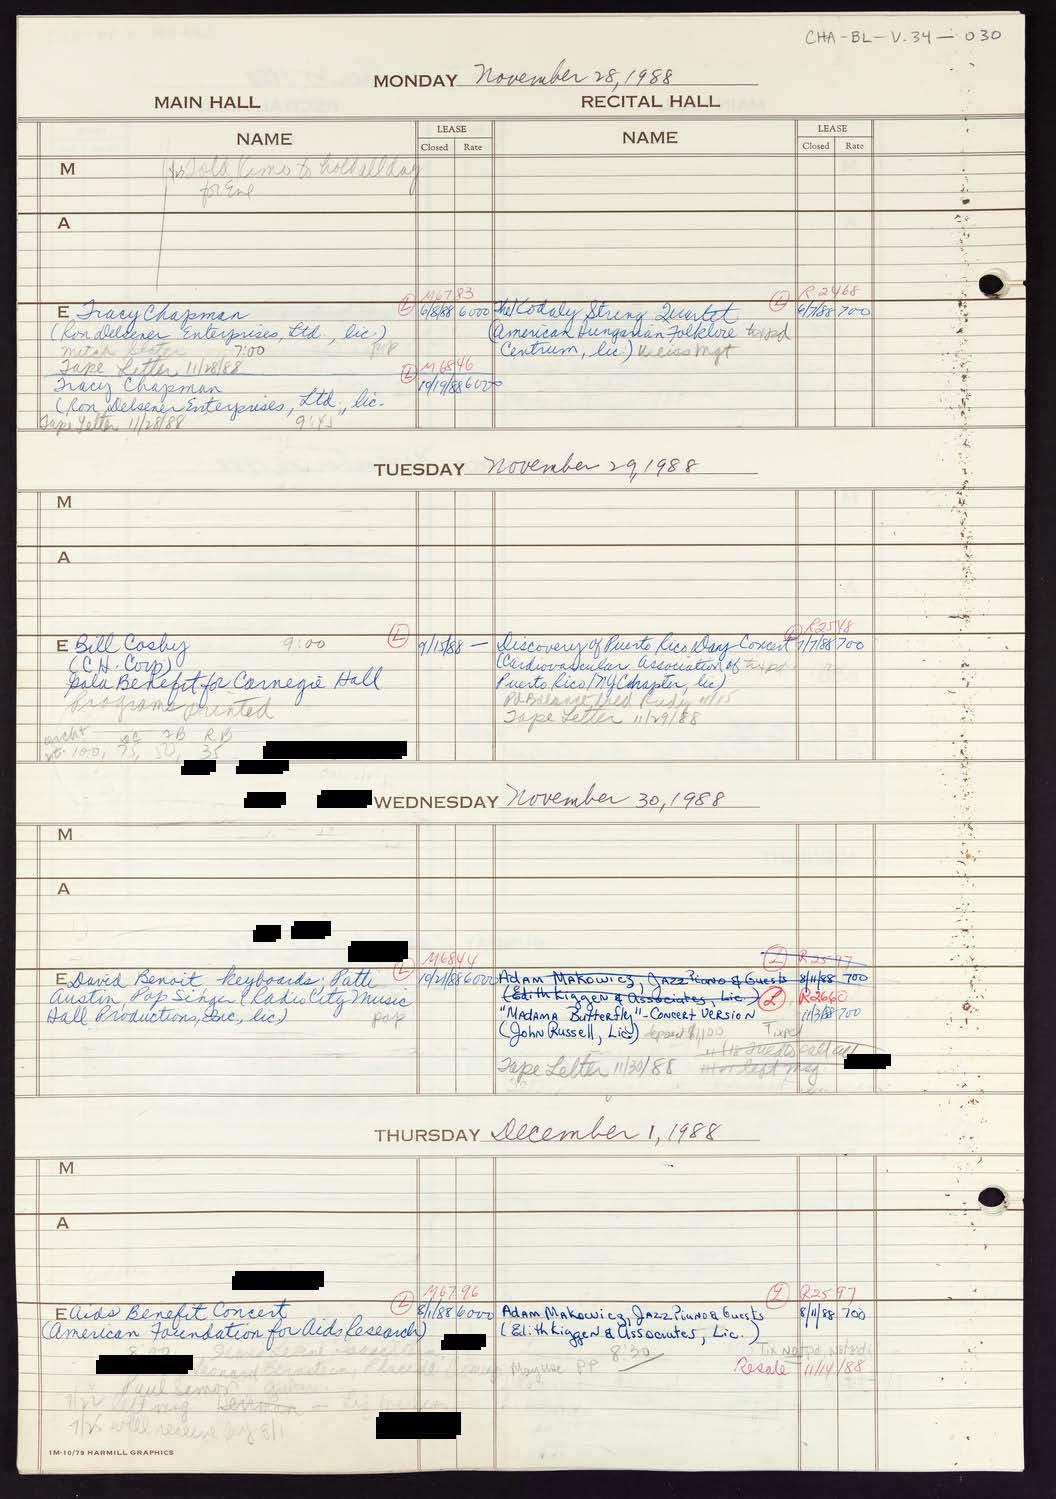 CHA-BL-V.34-030
MONDAY November 28, 1988
MAIN HALL RECITAL HALL
NAME LEASE NAME LEASE
Closed Rate Closed Rate
M
for Eve
A
M6783 R2468
E Tracy Chapman L 6/8/88 6000 The Kodaly String Quartet L 6/7/88 700
(Ron Delsener Enterprises, Ltd., lic.) (American Hungarian Folklore
7:00 pop Centrum, lic.) Weiss Mgt
Tape Letter 11/28/88 L M6846
Tracy Chapman 10/19/88 6000
(Ron Delsener Enterprises, Ltd., lic.
Tape Letter 11/28/88 9:45
TUESDAY November 29, 1988
M
A
R2548
E Bill Cosby 9:00 L 9/15/88 — Discovery of Puerto Rico Day Concert L 7/7/88 700
(C.H. Corp) (Cardiovascular Association of
Gala Benefit for Carnegie Hall Puerto Rico/NY Chapter, lic)
Programs printed
Tape Letter 11/29/88
100, 75, 50, 35
WEDNESDAY November 30, 1988
M
A
M6844 L R2597
E David Benoit keyboards; Patti L 10/21/88 6000 Adam Makowicz, Jazz Piano & Guests 8/11/88 700
Austin, Pop Singer (Radio City Music (Edith Kiggen & Associates, Lic.) L R2660
Hall Productions, Inc., lic) pop "Madama Butterfly"-Concert Version 11/3/88 700
(John Russell, Lic.) deposit $1,100 Tixpd
Tape Letter 11/30/88
THURSDAY December 1, 1988
M
A
M6796 L R2597
E Aids Benefit Concert L 8/1/88 6000 Adam Makowicz, Jazz Piano & Guests 8/11/88 700
(American Foundation for Aids Research) (Edith Kiggen & Associates, Lic.)
8:00 8:30
Leonard Bernstein, Resale 11/14/88
Paul Simon
Herrman
7/25 will receive by 8/1
1M-10/79 HARMILL GRAPHICS